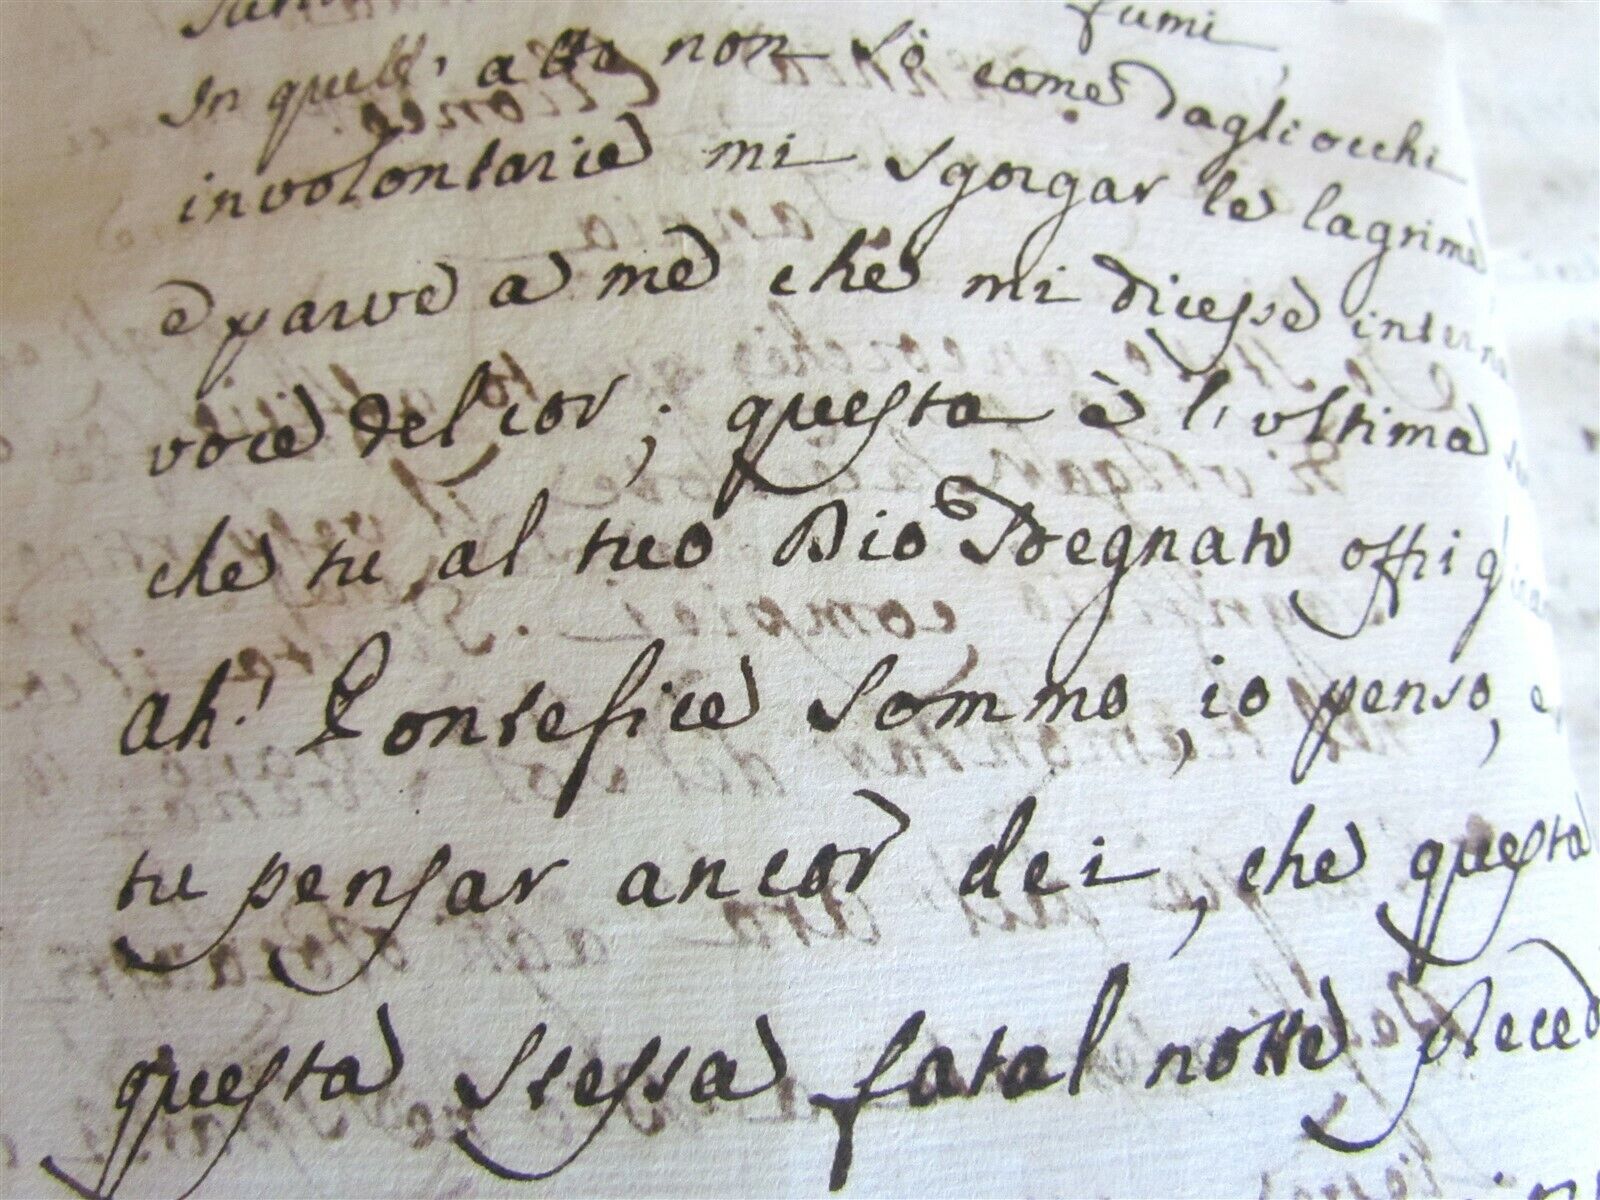 fumi,
In quell' atto non sò come dagliocchi
involontarie mi sgorgar le lagrime
e parve a me che mi dicesse interna
voce del cor; questa è l'ultima
che tu al tuo Dio sdegnato offri
ah! Pontefice Sommo, io penso, e
tu pensar ancor dei, che questa
questa stessa fatal notte